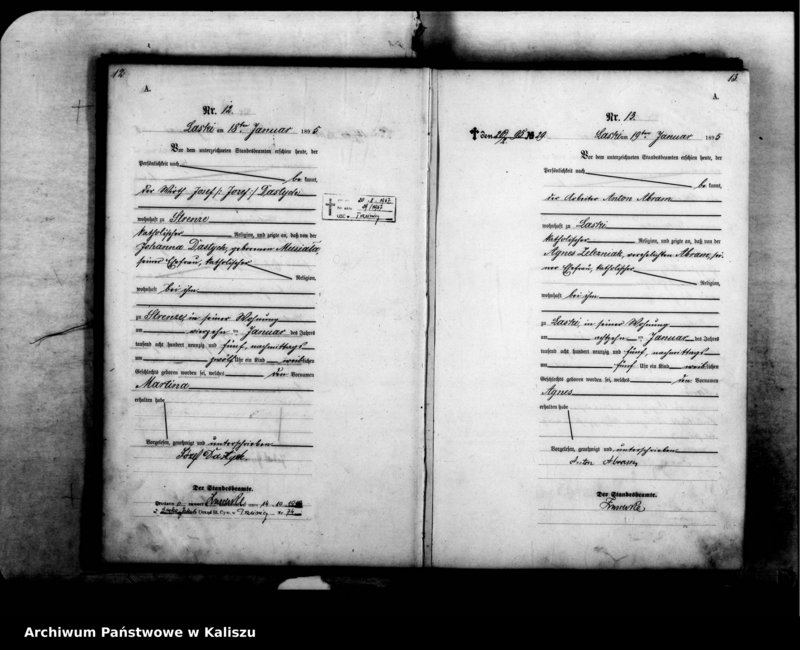 12.
A.
Nr. 12.
Laski am 18ten Januar 1895
Vor dem unterzeichneten Standesbeamten erschien heute, der
Persönlichkeit nach
be kannt,
der Wirth Josef /: Jozef :/ Dastych
wohnhaft zu Strenze
katholischer Religion, und zeigte an, daß von der
Johanna Dastych, geborenen Musiała,
seiner Ehefrau, katholischer
Religion,
wohnhaft bei ihm
zu Strenze, in seiner Wohnung
am vierzehn ten Januar des Jahres
tausend acht hundert neunzig und fünf, nachmittags
um zwölf Uhr ein Kind weiblichen
Geschlechts geboren worden sei, welches den Vornamen
Martina
erhalten habe
Vorgelesen, genehmigt und unterschrieben
Józef Dastych
Der Standesbeamte.
13.
A.
Nr. 13.
Laski am 19ten Januar 1895
Vor dem unterzeichneten Standesbeamten erschien heute, der
Persönlichkeit nach
be kannt,
der Arbeiter Anton Abram
wohnhaft zu Laski
katholischer Religion, und zeigte an, daß von der
Agnes Zelezniak, verehelichten Abram, sei
ner Ehefrau, katholischer
Religion,
wohnhaft bei ihm
zu Laski, in seiner Wohnung
am achtzehn ten Januar des Jahres
tausend acht hundert neunzig und fünf, nachmittags
um fünf Uhr ein Kind weiblichen
Geschlechts geboren worden sei, welches den Vornamen
Agnes
erhalten habe
Vorgelesen, genehmigt und unterschrieben
Anton Abram
Der Standesbeamte.
Archiwum Państwowe w Kaliszu